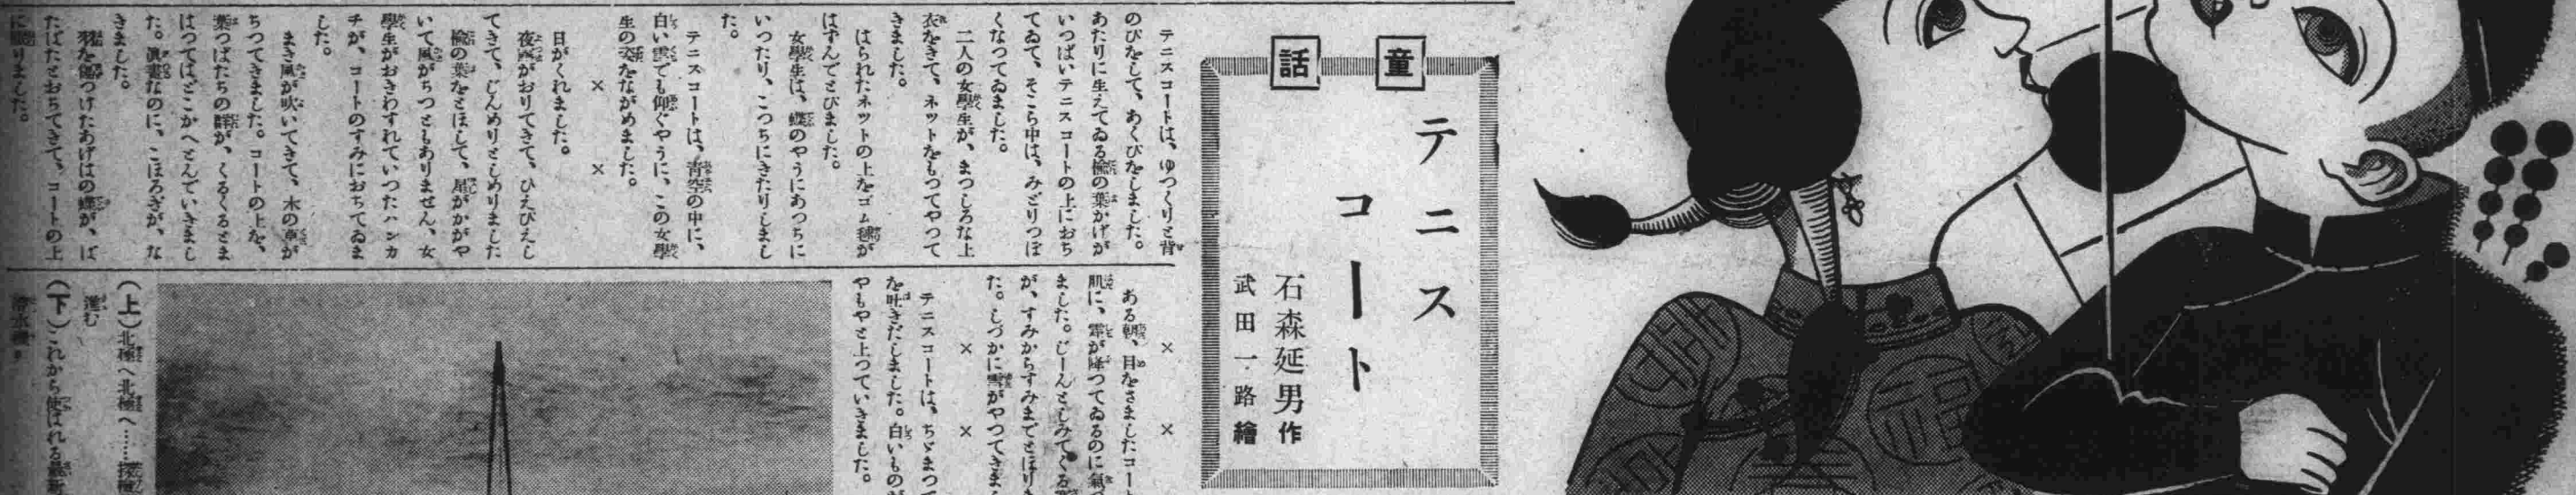 童話
テニス
コート
石森延男作
武田一路繪
テニスコートは、ゆつくりと背
のびをして、あくびをしました。
あたりに生えてゐる楡の葉かげが
いつぱいテニスコートの上におち
てゐて、そこら中は、みどりつぽ
くなつてゐました。
二人の女學生が、まつしろな上
衣をきて、ネットをもつてやつて
きました。
はられたネツトの上をゴム毬が
はずんでとびました。
女學生は、蝶のやうにあつちに
いつたり、こつちにきたりしまし
た。
テニスコートは、靑空の中に、
白い雲でも仰ぐやうに、この女學
生の姿をながめました。
× ×
日がくれました。
夜露がおりてきて、ひえびえし
てきて、じんめりとしめりました
楡の葉をとほして、星がかがや
いて風がちつともありません、女
學生がおきわすれていつたハンカ
チが、コートのすみにおちてゐま
した。
まき風が吹いてきて、木の草が
ちつてきました。コートの上を、
葉つぱたちの群が、くるくるとま
はつてはどこかへとんでいきまし
た。眞晝なのに、こほろぎが、な
きました。
羽を傷つけたあげはの蝶が、ば
たばたとおちてきて、コートの上
に眠りました。
× ×
ある朝、目をさましたコート
肌に、霜が降つてゐるのに氣
ました。じーんとしみてくる
が、すみからすみまでとほりま
た。しづかに雪がやつてきま
× ×
テニスコートは、ちゞまつて
を吐きだしました。白いものが
やもやと上つていきました。
(上)北極へ北極へ……
進む
(下)これから使はれる最新